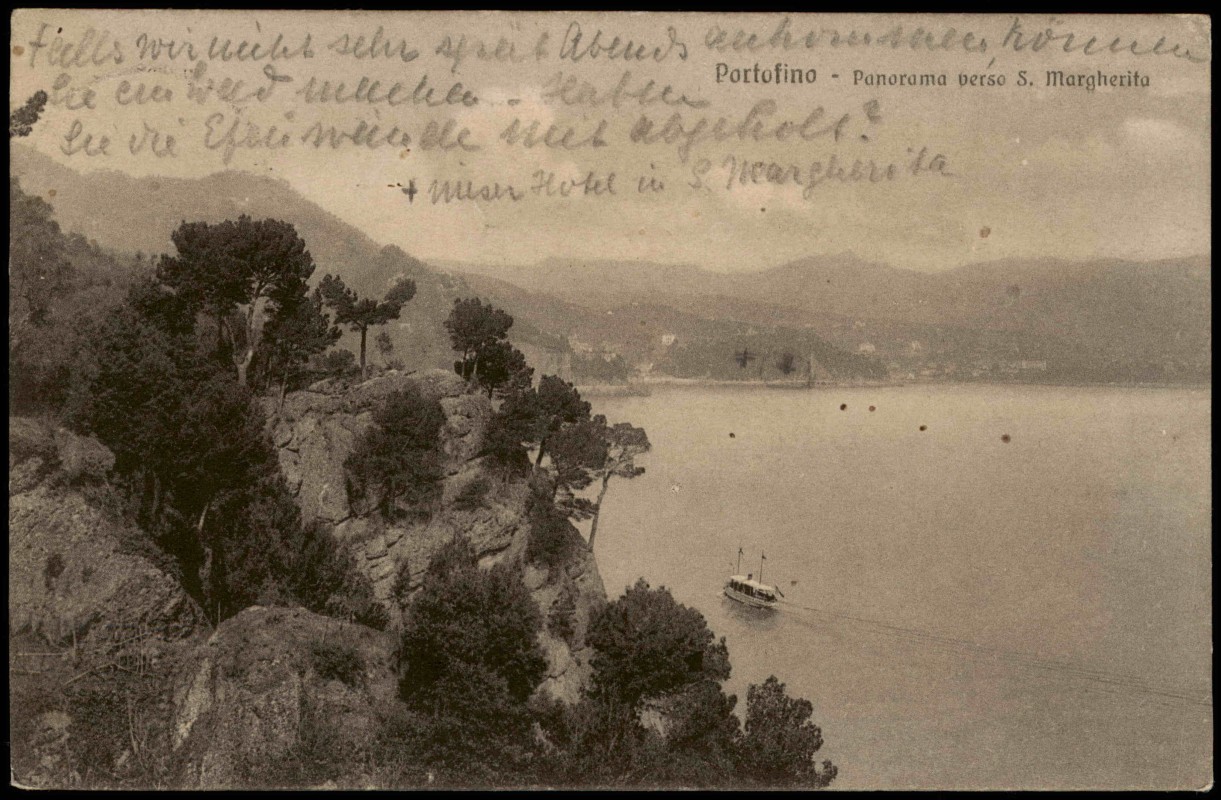 Falls wir nicht sehr spät Abends ankommen können
Portofino - Panorama verso S. Margherita
Sie ein Bad machen. Haben
Sie die Efeuwände mit abgeholt?
+ unser Hotel in S. Margherita